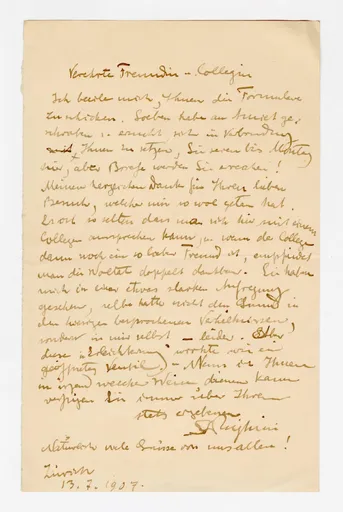 Verehrte Freundin – Collegin
Ich beeile mich, Ihnen die Formulare
zu schicken. Soeben habe an geschrieben
u. ersucht, sich in Verbindung
mit Ihnen zu setzen, Sie seien bis Montag
hier, aber Borafe werden Sie erreichen!
Meinen herzlichen Dank für Ihren lieben
Besuch, welcher mir so wol getan hat.
Es ist so selten dass man sich hier mit einem
Collegen aussprechen kann, u. wenn der College
dann noch ein so lieber Freund ist, empfindet
man die Woltat doppelt dankbar. Sie haben
mich in einer etwas starken Aufregung
gesehen, selbe hatte nicht den Grund in
den besprochenen Verhältnissen,
sondern in mir selbst – leider. Aber
diese "Erleichterung" wirkte wie ein
geöffnetes Ventil. – Wenn ich Ihnen
in irgend welcher Weise dienen kann
verfügen Sie immer über Ihren
stets ergebenen
viele Grüsse von uns allen!
Zürich
13. 7. 1907.